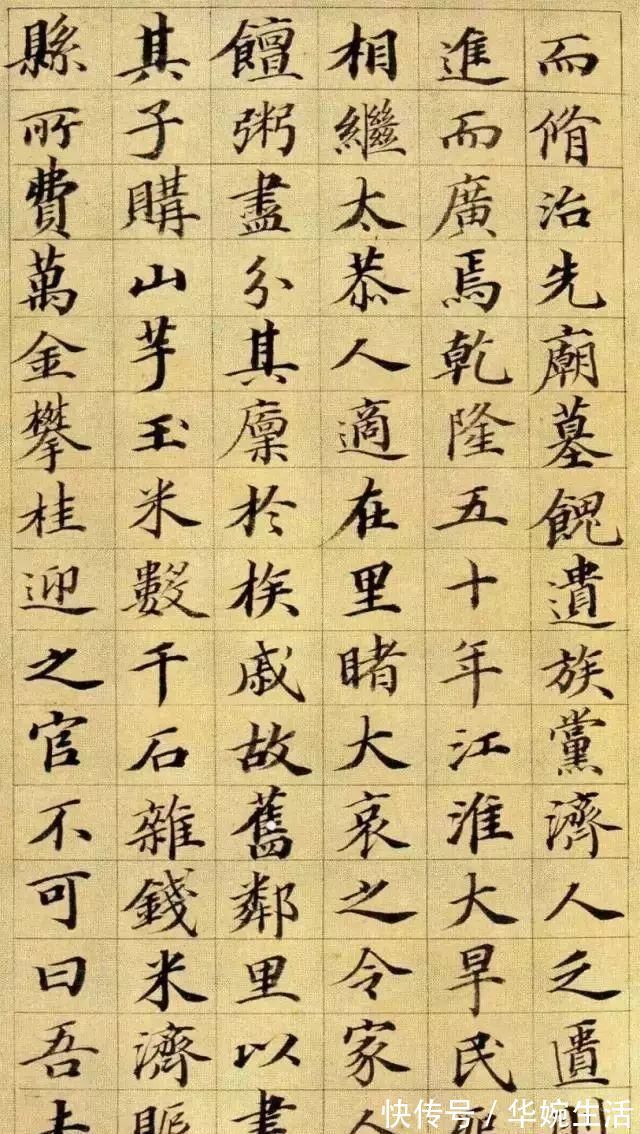 而脩治先廟墓餽遺族黨濟人之匱
進而廣焉乾隆五十年江淮大旱民
相繼太恭人適在里睹大哀之令家
饘粥盡分其廩於族戚故舊鄰里以
其子購山芋玉米數千石雜錢米濟
縣所費萬金攀桂迎之官不可曰吾
快传号 / 华婉生活